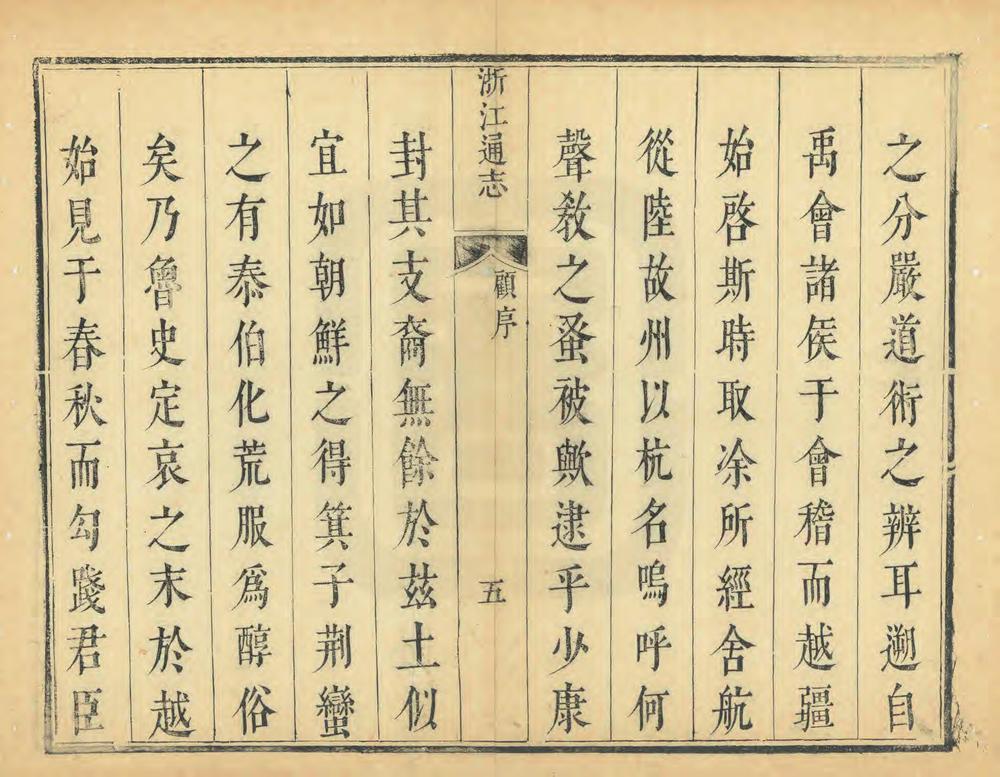 之分嚴道術之辨耳遡自
禹會諸侯于會稽而越疆
始啓斯時取凃所經舍航
從陸故州以杭名嗚呼何
聲敎之蚤被歟逮乎少康
浙江通志
顧序
五
封其支裔無餘於茲土似
宜如朝鮮之得箕子荆蠻
之有泰伯化荒服爲醇俗
矣乃魯史定哀之末於越
始見于春秋而勾踐君臣